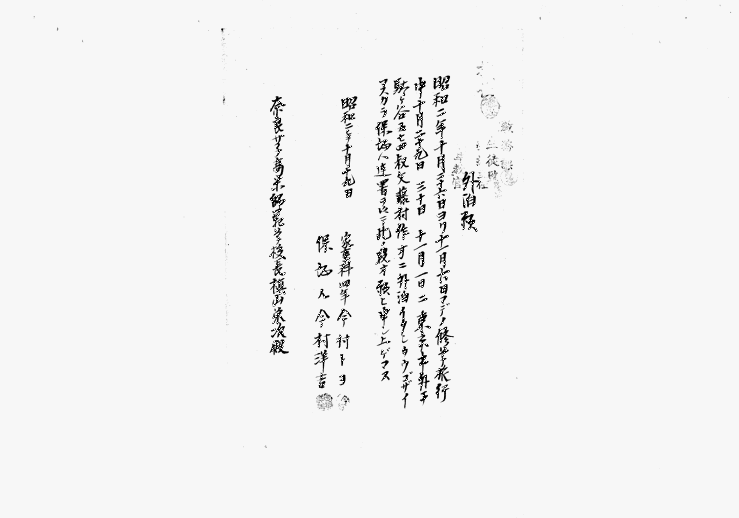 外泊願
昭和二年十月二十六日ヨリ十一月六日マデノ修学旅行
中十月二十九日 三十日 十一月一日ニ東京市外千
駄ヶ谷五七四叔父藤村作方ニ外泊イタシタウゴザイ
マスカラ保証人連署ヲ以テ此ノ段オ願ヒ申シ上ゲマス
昭和二年十月十九日
家事科四年 今村トヨ
保証人 今村洋吉
奈良女子高等師範学校長槇山栄次殿